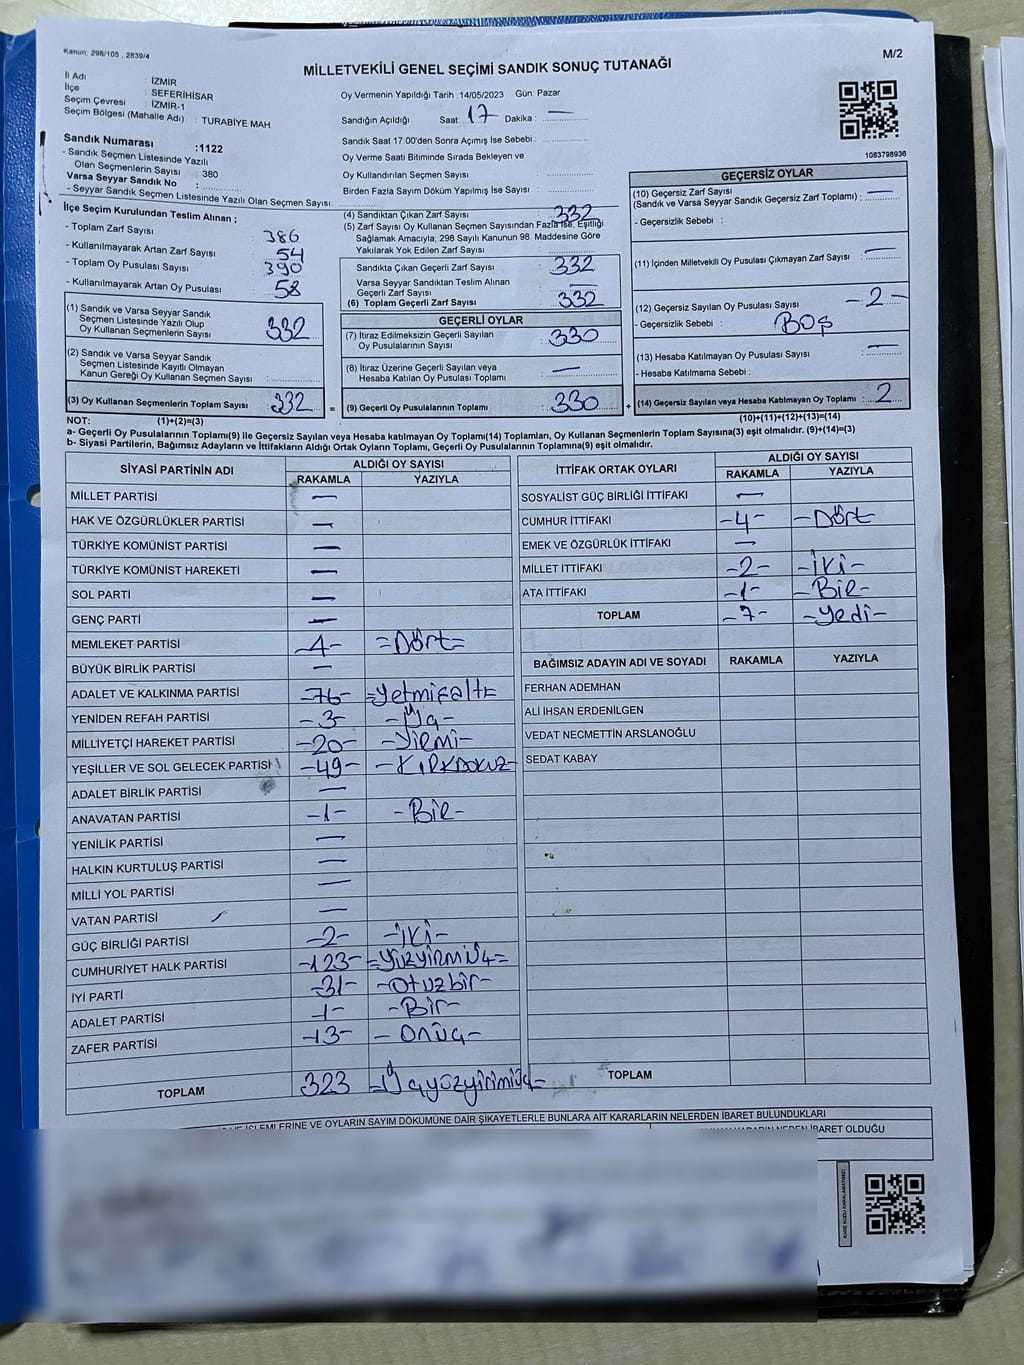 Kanun: 298/105 , 2839/4
M/2
MİLLETVEKİLİ GENEL SEÇİMİ SANDIK SONUÇ TUTANAĞI
İl Adı : İZMİR
İlçe : SEFERİHİSAR
Seçim Çevresi : İZMİR-1
Seçim Bölgesi (Mahalle Adı) : TURABİYE MAH
Sandık Numarası :1122
- Sandık Seçmen Listesinde Yazılı
Olan Seçmenlerin Sayısı : 380
Varsa Seyyar Sandık No :
- Seyyar Sandık Seçmen Listesinde Yazılı Olan Seçmen Sayısı:
Oy Vermenin Yapıldığı Tarih :14/05/2023 Gün: Pazar
Sandığın Açıldığı Saat: 17 Dakika : —
Sandık Saat 17.00'den Sonra Açımış İse Sebebi :
Oy Verme Saati Bitiminde Sırada Bekleyen ve
Oy Kullandırılan Seçmen Sayısı :
Birden Fazla Sayım Döküm Yapılmış İse Sayısı :
1083798936
İlçe Seçim Kurulundan Teslim Alınan ;
- Toplam Zarf Sayısı : 386
- Kullanılmayarak Artan Zarf Sayısı : 54
- Toplam Oy Pusulası Sayısı : 390
- Kullanılmayarak Artan Oy Pusulası : 58
(1) Sandık ve Varsa Seyyar Sandık
Seçmen Listesinde Yazılı Olup
Oy Kullanan Seçmenlerin Sayısı : 332
(2) Sandık ve Varsa Seyyar Sandık
Seçmen Listesinde Kayıtlı Olmayan
Kanun Gereği Oy Kullanan Seçmen Sayısı :
(3) Oy Kullanan Seçmenlerin Toplam Sayısı : 332 =
(4) Sandıktan Çıkan Zarf Sayısı : 332
(5) Zarf Sayısı Oy Kullanan Seçmen Sayısından Fazla İse, Eşitliği
Sağlamak Amacıyla, 298 Sayılı Kanunun 98. Maddesine Göre
Yakılarak Yok Edilen Zarf Sayısı :
Sandıkta Çıkan Geçerli Zarf Sayısı : 332
Varsa Seyyar Sandıktan Teslim Alınan
Geçerli Zarf Sayısı : —
(6) Toplam Geçerli Zarf Sayısı : 332
GEÇERLİ OYLAR
(7) İtiraz Edilmeksizin Geçerli Sayılan
Oy Pusulalarının Sayısı : 330
(8) İtiraz Üzerine Geçerli Sayılan veya
Hesaba Katılan Oy Pusulası Toplamı : —
(9) Geçerli Oy Pusulalarının Toplamı : 330 +
GEÇERSİZ OYLAR
(10) Geçersiz Zarf Sayısı
(Sandık ve Varsa Seyyar Sandık Geçersiz Zarf Toplamı) : —
- Geçersizlik Sebebi :
(11) İçinden Milletvekili Oy Pusulası Çıkmayan Zarf Sayısı : —
(12) Geçersiz Sayılan Oy Pusulası Sayısı : -2-
- Geçersizlik Sebebi : BOŞ
(13) Hesaba Katılmayan Oy Pusulası Sayısı : —
- Hesaba Katılmama Sebebi :
(14) Geçersiz Sayılan veya Hesaba Katılmayan Oy Toplamı : 2
NOT: (1)+(2)=(3)
(10)+(11)+(12)+(13)=(14)
a- Geçerli Oy Pusulalarının Toplamı(9) ile Geçersiz Sayılan veya Hesaba katılmayan Oy Toplamı(14) Toplamları, Oy Kullanan Seçmenlerin Toplam Sayısına(3) eşit olmalıdır. (9)+(14)=(3)
b- Siyasi Partilerin, Bağımsız Adayların ve İttifakların Aldığı Ortak Oyların Toplamı, Geçerli Oy Pusulalarının Toplamına(9) eşit olmalıdır.
SİYASİ PARTİNİN ADI
ALDIĞI OY SAYISI
RAKAMLA YAZIYLA
MİLLET PARTİSİ —
HAK VE ÖZGÜRLÜKLER PARTİSİ —
TÜRKİYE KOMÜNİST PARTİSİ —
TÜRKİYE KOMÜNİST HAREKETİ —
SOL PARTİ —
GENÇ PARTİ —
MEMLEKET PARTİSİ -4- =Dört=
BÜYÜK BİRLİK PARTİSİ —
ADALET VE KALKINMA PARTİSİ -76- =Yetmişaltı=
YENİDEN REFAH PARTİSİ -3- -Üç-
MİLLİYETÇİ HAREKET PARTİSİ -20- -Yirmi-
YEŞİLLER VE SOL GELECEK PARTİSİ -49- -KIRKDOKUZ-
ADALET BİRLİK PARTİSİ —
ANAVATAN PARTİSİ -1- -Bir-
YENİLİK PARTİSİ —
HALKIN KURTULUŞ PARTİSİ —
MİLLİ YOL PARTİSİ —
VATAN PARTİSİ —
GÜÇ BİRLİĞİ PARTİSİ -2- -İKİ-
CUMHURİYET HALK PARTİSİ -123- =YÜZYİRMİÜÇ=
İYİ PARTİ -31- -Otuzbir-
ADALET PARTİSİ -1- -Bir-
ZAFER PARTİSİ -13- -Onüç-
TOPLAM 323 =Üçyüzyirmiüç=
İTTİFAK ORTAK OYLARI
ALDIĞI OY SAYISI
RAKAMLA YAZIYLA
SOSYALİST GÜÇ BİRLİĞİ İTTİFAKI —
CUMHUR İTTİFAKI -4- -Dört-
EMEK VE ÖZGÜRLÜK İTTİFAKI —
MİLLET İTTİFAKI -2- -İKİ-
ATA İTTİFAKI -1- -Bir-
TOPLAM -7- -Yedi-
BAĞIMSIZ ADAYIN ADI VE SOYADI RAKAMLA YAZIYLA
FERHAN ADEMHAN
ALİ İHSAN ERDENİLGEN
VEDAT NECMETTİN ARSLANOĞLU
SEDAT KABAY
TOPLAM
İŞLEMLERİNE VE OYLARIN SAYIM DÖKÜMÜNE DAİR ŞİKAYETLERLE BUNLARA AİT KARARLARIN NELERDEN İBARET BULUNDUKLARI
KARARIN NEDEN İBARET OLDUĞU
KARE KODU KARALAMAYINIZ!